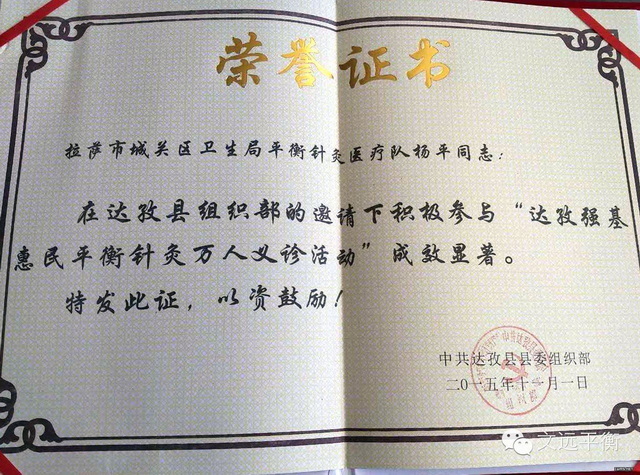 荣誉证书
拉萨市城关区卫生局平衡针灸医疗队杨平同志：
在达孜县组织部的邀请下积极参与“达孜强基
惠民平衡针灸万人义诊活动”成效显著。
特发此证，以资鼓励！
中共达孜县县委组织部
二〇一五年十一月一日
文远平衡